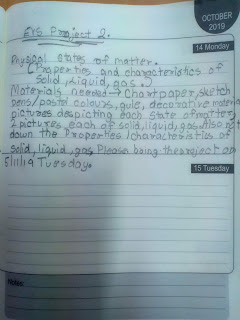 OCTOBER
2019
EVS Project 2.
14 Monday
Physical States of matter.
(Properties and characteristics of
Solid, Liquid, gas.)
Materials needed → Chart paper, sketch
pens/pastel colours, gule, decorative material
pictures despicting each state of matter,
2 pictures each of solid, liquid, gas. Also
down the Properties/characteristics of
solid, liquid, gas. Please being the project on
5/11/19 Tuesday.
15 Tuesday
Notes: